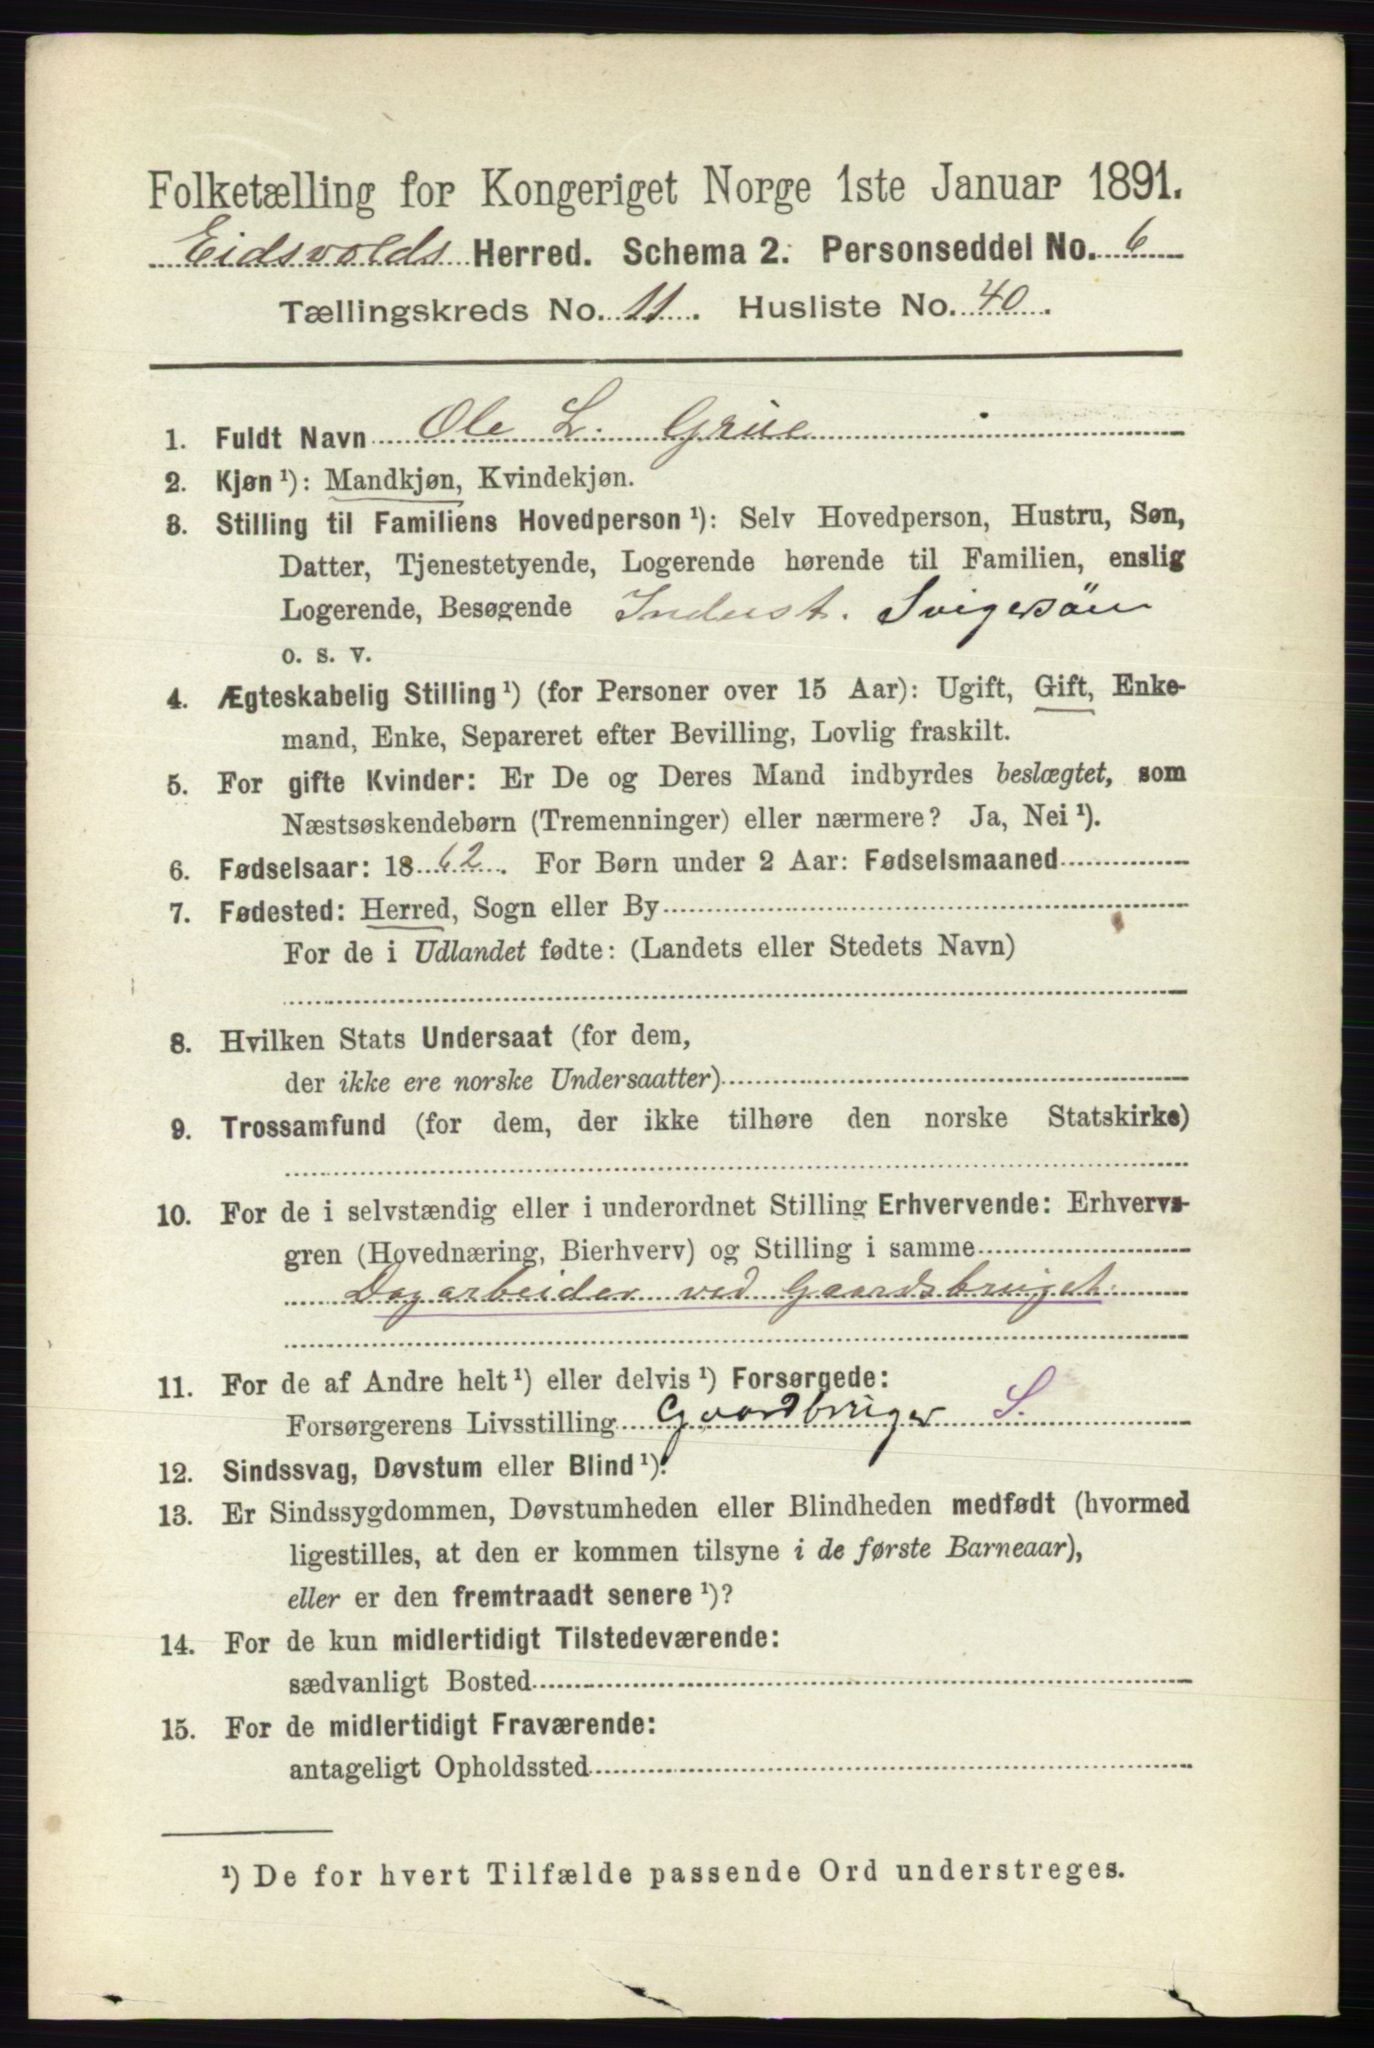 Folketælling for Kongeriget Norge 1ste Januar 1891.
Eidsvolds Herred. Schema 2. Personseddel No. 6
Tællingskreds No. 11. Husliste No. 40.
1. Fuldt Navn Ole L. Grüe
2. Kjøn ¹): Mandkjøn, Kvindekjøn.
3. Stilling til Familiens Hovedperson ¹): Selv Hovedperson, Hustru, Søn,
Datter, Tjenestetyende, Logerende hørende til Familien, enslig
Logerende, Besøgende Inderst. Svigersön
o. s. v.
4. Ægteskabelig Stilling ¹) (for Personer over 15 Aar): Ugift, Gift, Enke-
mand, Enke, Separeret efter Bevilling, Lovlig fraskilt.
5. For gifte Kvinder: Er De og Deres Mand indbyrdes beslægtet, som
Næstsøskendebørn (Tremenninger) eller nærmere? Ja, Nei ¹).
6. Fødselsaar: 1862. For Børn under 2 Aar: Fødselsmaaned
7. Fødested: Herred, Sogn eller By
For de i Udlandet fødte: (Landets eller Stedets Navn)
8. Hvilken Stats Undersaat (for dem,
der ikke ere norske Undersaatter)
9. Trossamfund (for dem, der ikke tilhøre den norske Statskirke)
10. For de i selvstændig eller i underordnet Stilling Erhvervende: Erhvervs-
gren (Hovednæring, Bierhverv) og Stilling i samme
Dagarbeider ved Gaardsbruget.
11. For de af Andre helt ¹) eller delvis ¹) Forsørgede:
Forsørgerens Livsstilling Gaardbruger S.
12. Sindssvag, Døvstum eller Blind ¹).
13. Er Sindssygdommen, Døvstumheden eller Blindheden medfødt (hvormed
ligestilles, at den er kommen tilsyne i de første Barneaar),
eller er den fremtraadt senere ¹)?
14. For de kun midlertidigt Tilstedeværende:
sædvanligt Bosted
15. For de midlertidigt Fraværende:
antageligt Opholdssted
¹) De for hvert Tilfælde passende Ord understreges.